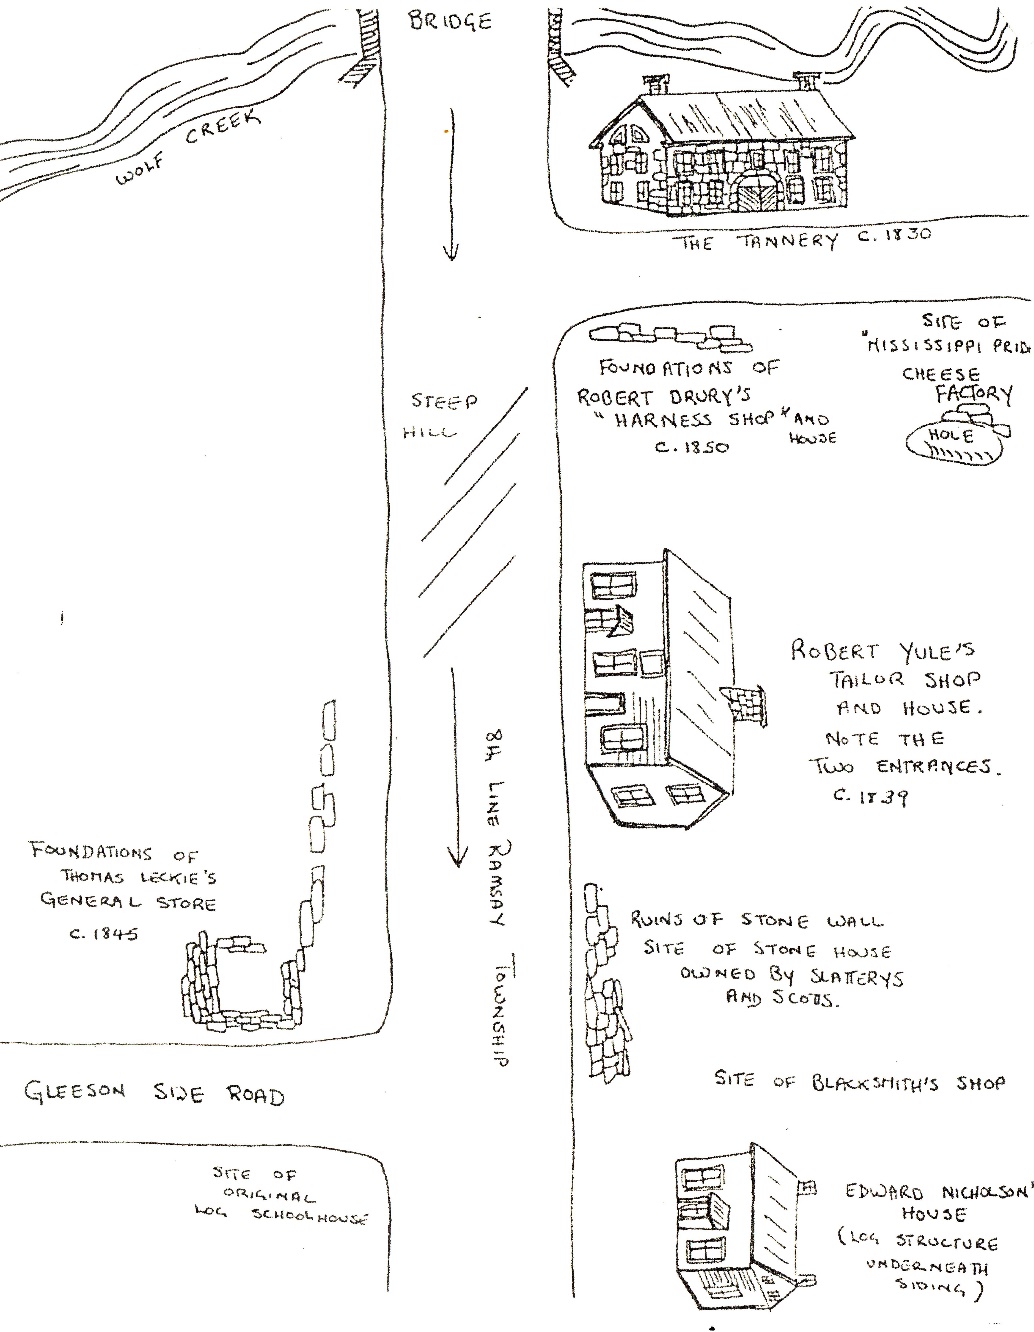 BRIDGE
WOLF CREEK
THE TANNERY C. 1830
SITE OF
"MISSISSIPPI PRID
CHEESE
FACTORY
HOLE
FOUNDATIONS OF
ROBERT DRURY'S
"HARNESS SHOP" AND
HOUSE
C. 1850
STEEP
HILL
ROBERT YULE'S
TAILOR SHOP
AND HOUSE.
NOTE THE
TWO ENTRANCES.
C. 1839
8th LINE RAMSAY TOWNSHIP
FOUNDATIONS OF
THOMAS LECKIE'S
GENERAL STORE
C. 1845
RUINS OF STONE WALL
SITE OF STONE HOUSE
OWNED BY SLATTERYS
AND SCOTTS.
GLEESON SIDE ROAD
SITE OF BLACKSMITH'S SHOP
SITE OF
ORIGINAL
LOG SCHOOLHOUSE
EDWARD NICHOLSON'
HOUSE
(LOG STRUCTURE
UNDERNEATH
SIDING)